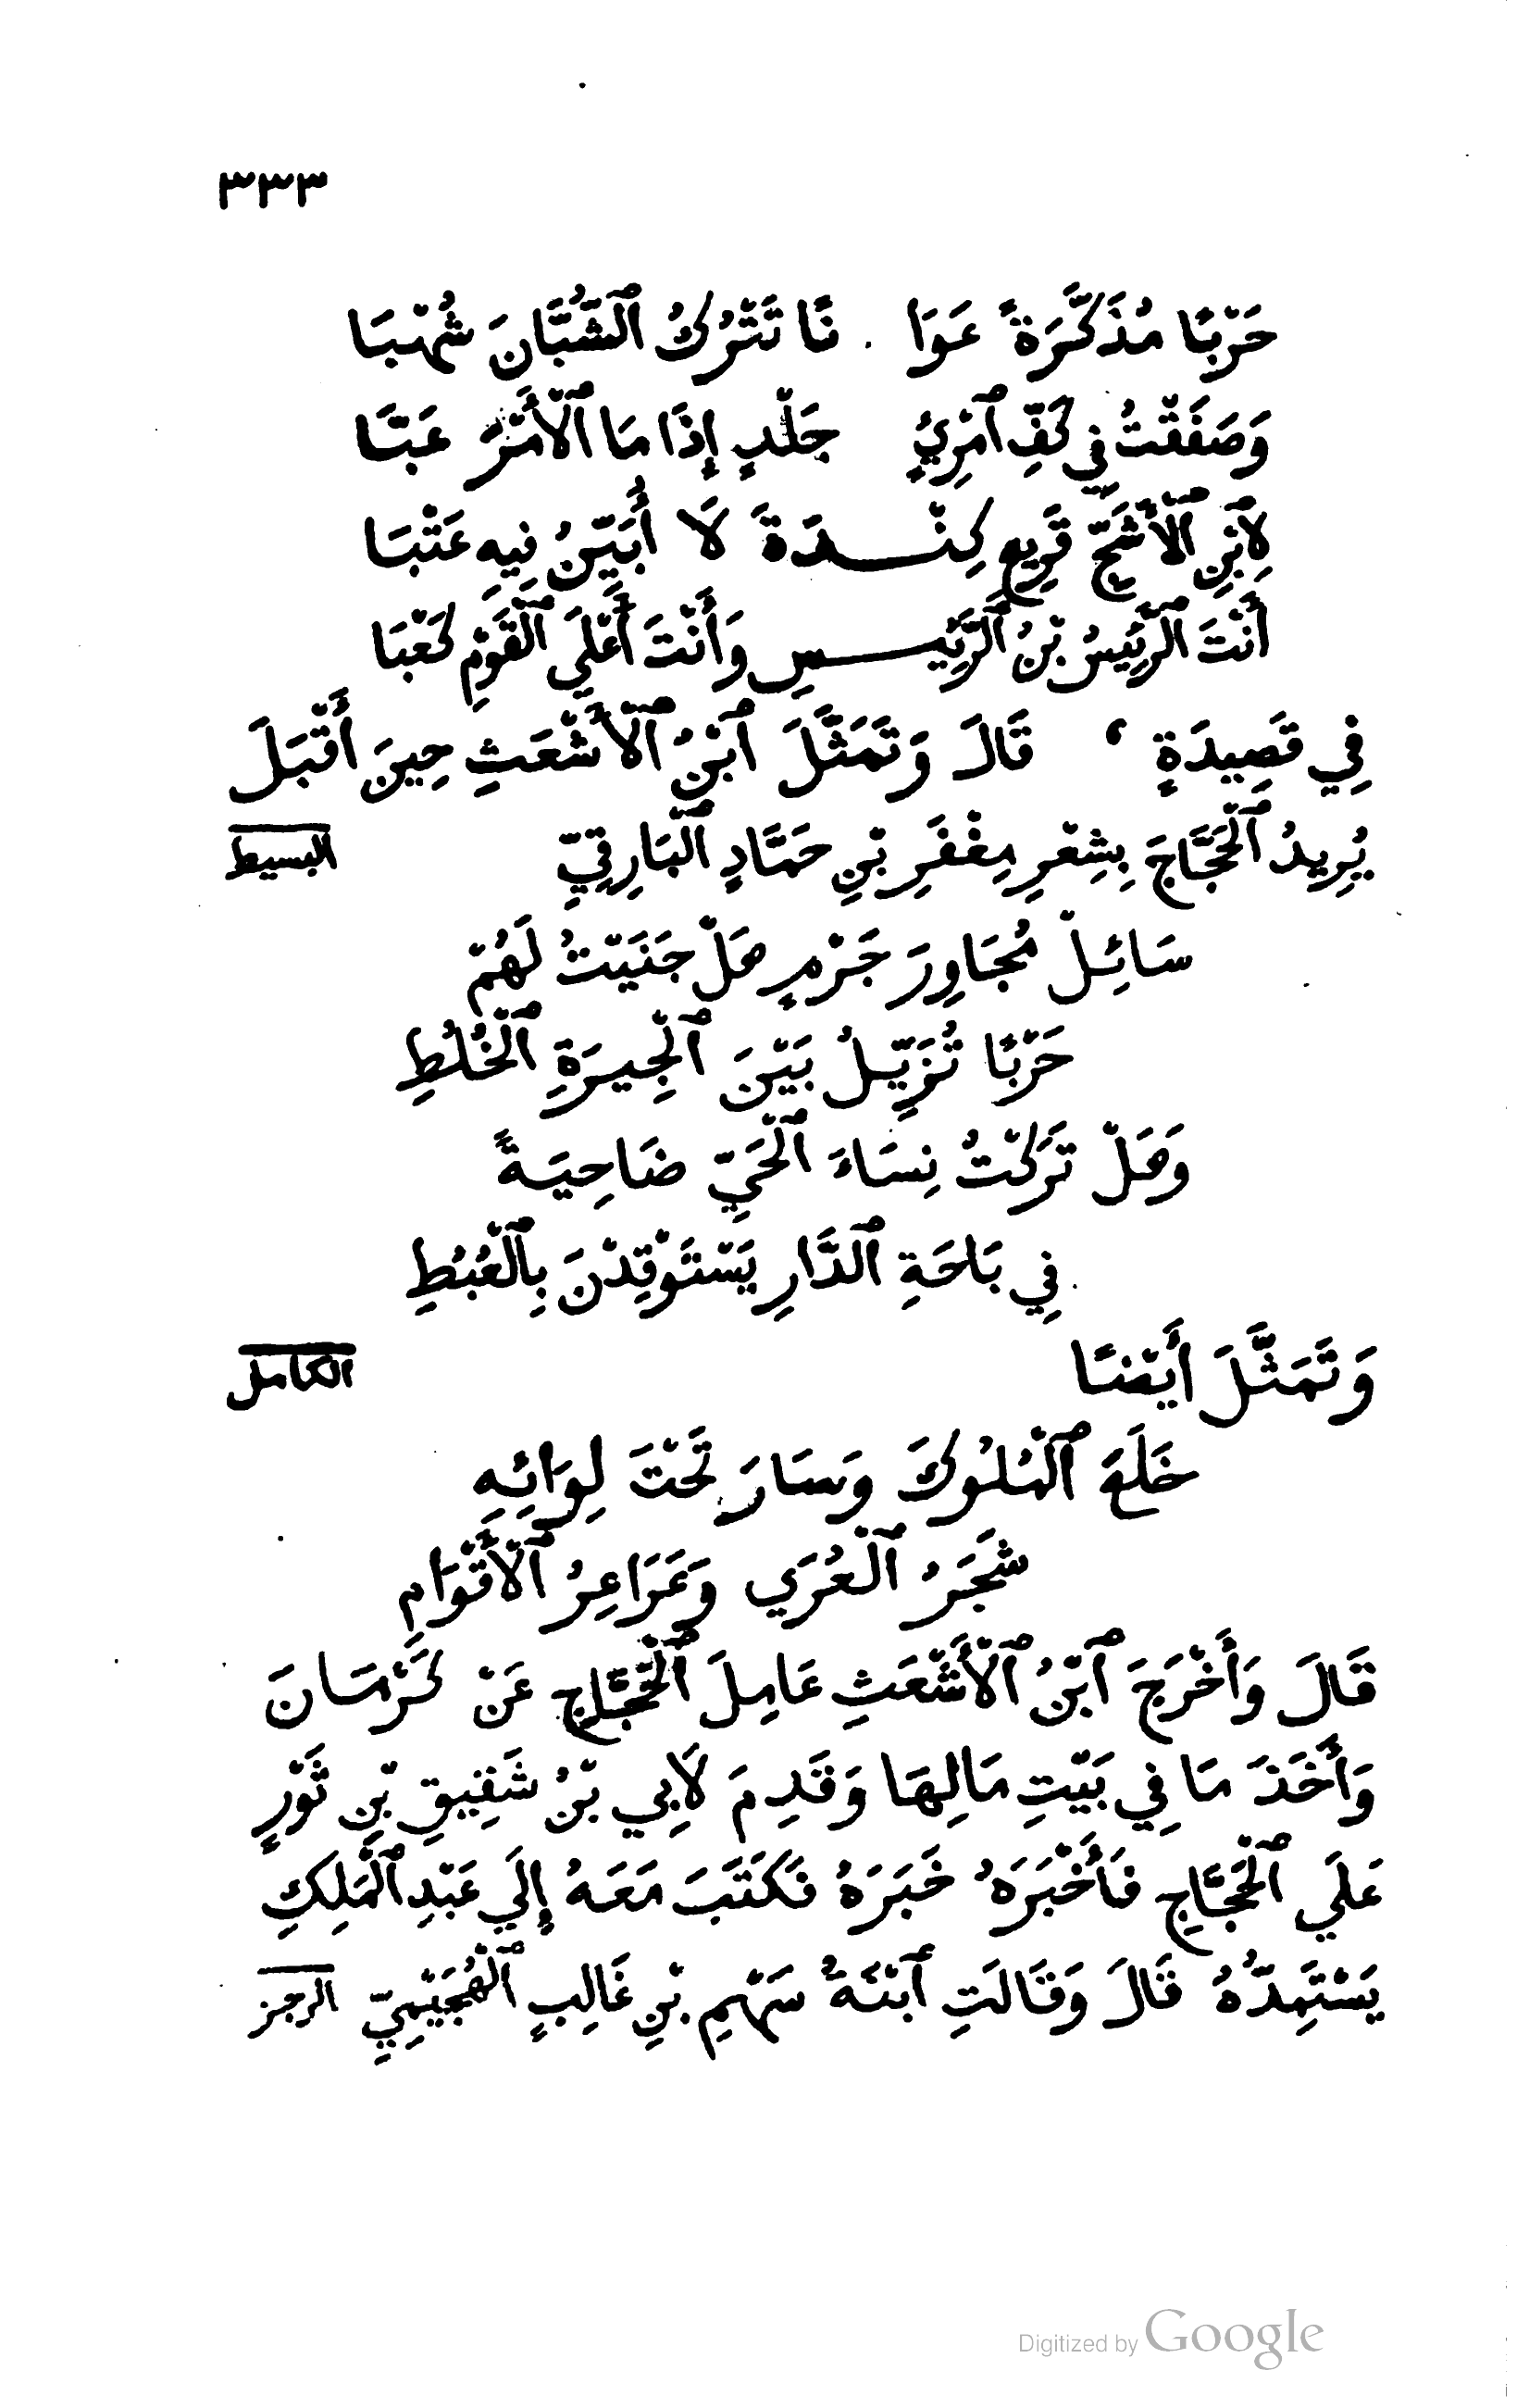 ٣٣٣
حَرْبًا مُذَكَّرَةً عَوَا نًا تَتْرُكُ ٱلشُّبَّانَ شُهْبَا
وَصَفَقْتُ فِي كَفِّ ٱمْرِئٍ جَلْدٍ إِذَا مَا ٱلْأَمْرُ عَبَّا
لِٱبْنِ ٱلْأَشَجِّ قَرِيعِ كِنْـــدَةَ لَا أُبَيِّنُ فِيهِ عَتْبَا
أَنْتَ ٱلرَّئِيسُ بْنُ ٱلرَّئِيـــسِ وَأَنْتَ أَعْلَي ٱلْقَوْمِ كَعْبَا
فِي قَصِيدَةٍ ، قَالَ وَتَمَثَّلَ ٱبْنُ ٱلْأَشْعَثِ حِينَ أَقْبَلَ
يُرِيدُ ٱلْحَجَّاجَ بِشِعْرِ مِغْفَرِ بْنِ حَمَّادٍ ٱلْبَارِقِيِّ البسيط
سَائِلْ مُجَاوِرَ جَرْمٍ هَلْ جَنَيْتُ لَهُمْ
حَرْبًا تُزَيِّلُ بَيْنَ ٱلْجِيرَةِ ٱلْخُلُطِ
وَهَلْ تَرَكْتُ نِسَاءَ ٱلْحَيِّ ضَاحِيَةً
فِي بَاحَةِ ٱلدَّارِ يَسْتَوْقِدْنَ بِٱلْغُبُطِ
وَتَمَثَّلَ أَيْضًا الكامل
خَلَعَ ٱلْمُلُوكَ وَسَارَ تَحْتَ لِوَائِهِ
شَجَرُ ٱلْعُرَي وَعَرَاعِرُ ٱلْأَقْوَامِ
قَالَ وَأَخْرَجَ ٱبْنُ ٱلْأَشْعَثِ عَامِلَ ٱلْحَجَّاجِ عَنْ كَرْمَانَ
وَأَخَذَ مَا فِي بَيْتِ مَالِهَا وَقَدِمَ لَأْيُ بْنُ شَقِيقِ بْنِ ثَوْرٍ
عَلَي ٱلْحَجَّاجِ فَأَخْبَرَهُ خَبَرَهُ فَكَتَبَ مَعَهُ إِلَي عَبْدِ ٱلْمَلِكِ
يَسْتَمِدُّهُ قَالَ وَقَالَتِ ٱبْنَةُ سَهْمِ بْنِ غَالِبٍ ٱلْهُجَيْمِيِّ الرجز
Digitized by Google